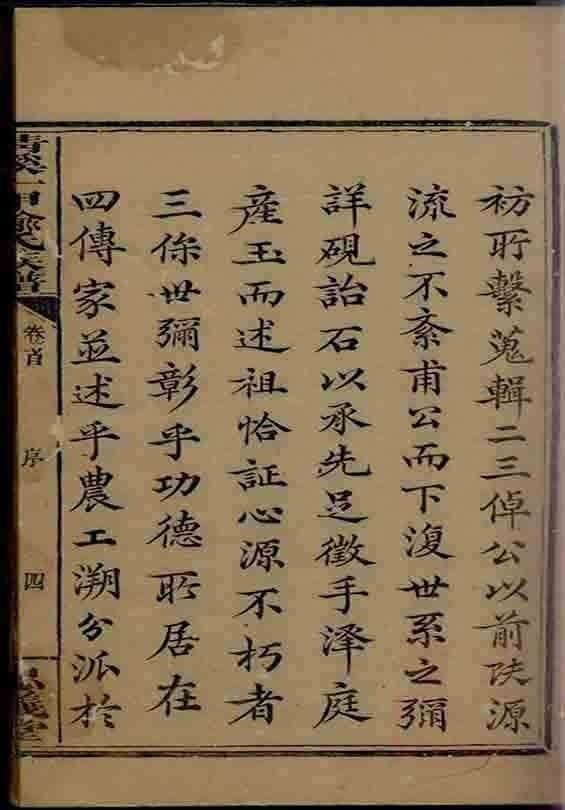 祊所繫蒐輯二三倬公以前源
流之不紊甫公而下復世系之彌
詳硯詒石以承先足徵手泽庭
產玉而述祖恰証心源不朽者
三世彌彰乎功德所居在
四傳家並述乎農工溯分派於
一甲氏譜
卷首
序
四
堂